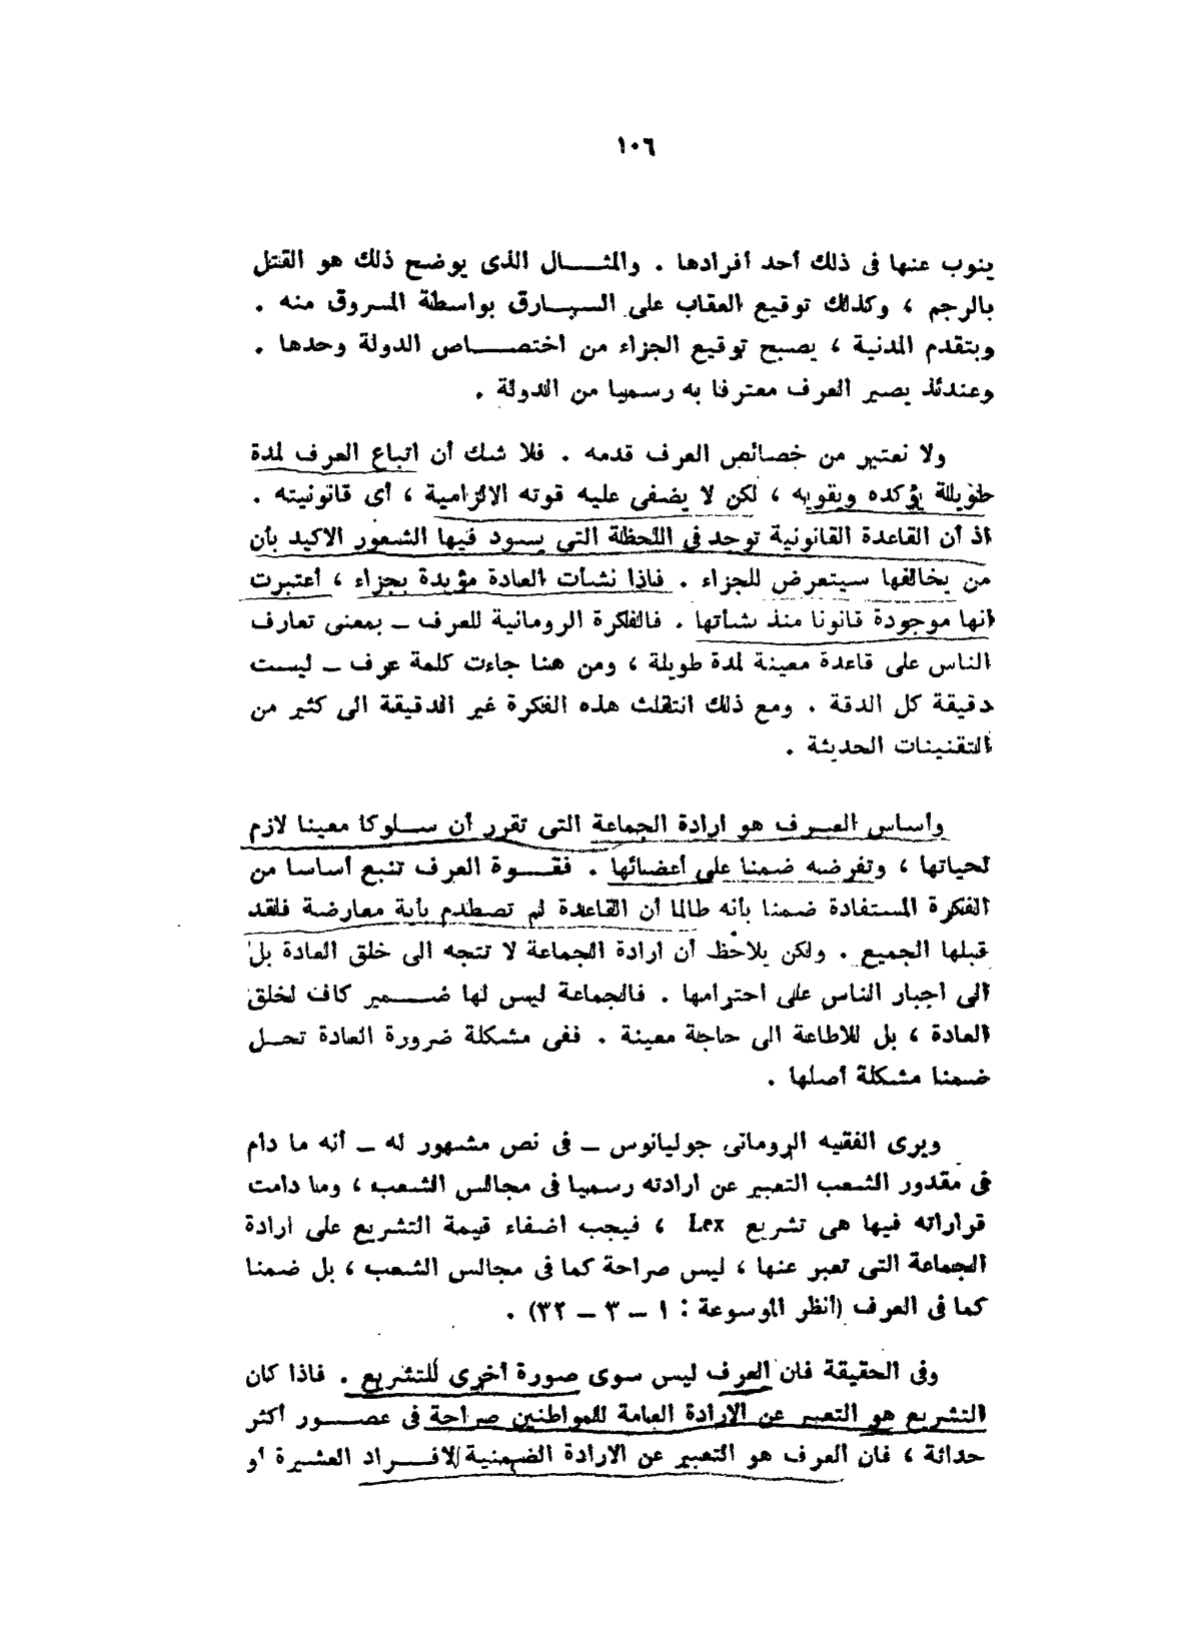 ١٠٦
ينوب عنها فى ذلك أحد أفرادها . والمثـــال الذى يوضح ذلك هو القتل
بالرجم ، وكذلك توقيع العقاب على السـارق بواسطة المسروق منه .
وبتقدم المدنية ، يصبح توقيع الجزاء من اختصــاص الدولة وحدها .
وعندئذ يصير العرف معترفا به رسميا من الدولة .
ولا نعتبر من خصائص العرف قدمه . فلا شك أن اتباع العرف لمدة
طويلة يؤكده ويقويه ، لكن لا يضفى عليه قوته الالزامية ، أى قانونيته .
اذ أن القاعدة القانونية توجد فى اللحظة التى يسود فيها الشعور الاكيد بأن
من يخالفها سيتعرض للجزاء . فاذا نشأت العادة مؤيدة بجزاء ، أعتبرت
أنها موجودة قانونا منذ نشأتها . فالفكرة الرومانية للعرف ــ بمعنى تعارف
الناس على قاعدة معينة لمدة طويلة ، ومن هنا جاءت كلمة عرف ــ ليست
دقيقة كل الدقة . ومع ذلك انتقلت هذه الفكرة غير الدقيقة الى كثير من
التقنينات الحديثة .
وأساس العـرف هو ارادة الجماعة التى تقرر أن سـلوكا معينا لازم
لحياتها ، وتفرضه ضمنا على أعضائها . فقــوة العرف تنبع أساسا من
الفكرة المستفادة ضمنا بأنه طالما أن القاعدة لم تصطدم بأية معارضة فلقد
قبلها الجميع . ولكن يلاحظ أن ارادة الجماعة لا تتجه الى خلق العادة بل
الى اجبار الناس على احترامها . فالجماعة ليس لها ضــمير كاف لخلق
العادة ، بل للاطاعة الى حاجة معينة . ففى مشكلة ضرورة العادة تحـل
ضمنا مشكلة أصلها .
ويرى الفقيه الرومانى جوليانوس ــ فى نص مشهور له ــ أنه ما دام
فى مقدور الشعب التعبير عن ارادته رسميا فى مجالس الشعب ، وما دامت
قراراته فيها هى تشريع Lex ، فيجب اضفاء قيمة التشريع على ارادة
الجماعة التى تعبر عنها ، ليس صراحة كما فى مجالس الشعب ، بل ضمنا
كما فى العرف (أنظر الموسوعة : ١ ــ ٣ ــ ٣٢) .
وفى الحقيقة فان العرف ليس سوى صورة أخرى للتشريع . فاذا كان
التشريع هو التعبير عن الارادة العامة للمواطنين صراحة فى عصــور أكثر
حداثة ، فان العرف هو التعبير عن الارادة الضمنية لافــراد العشيرة أو